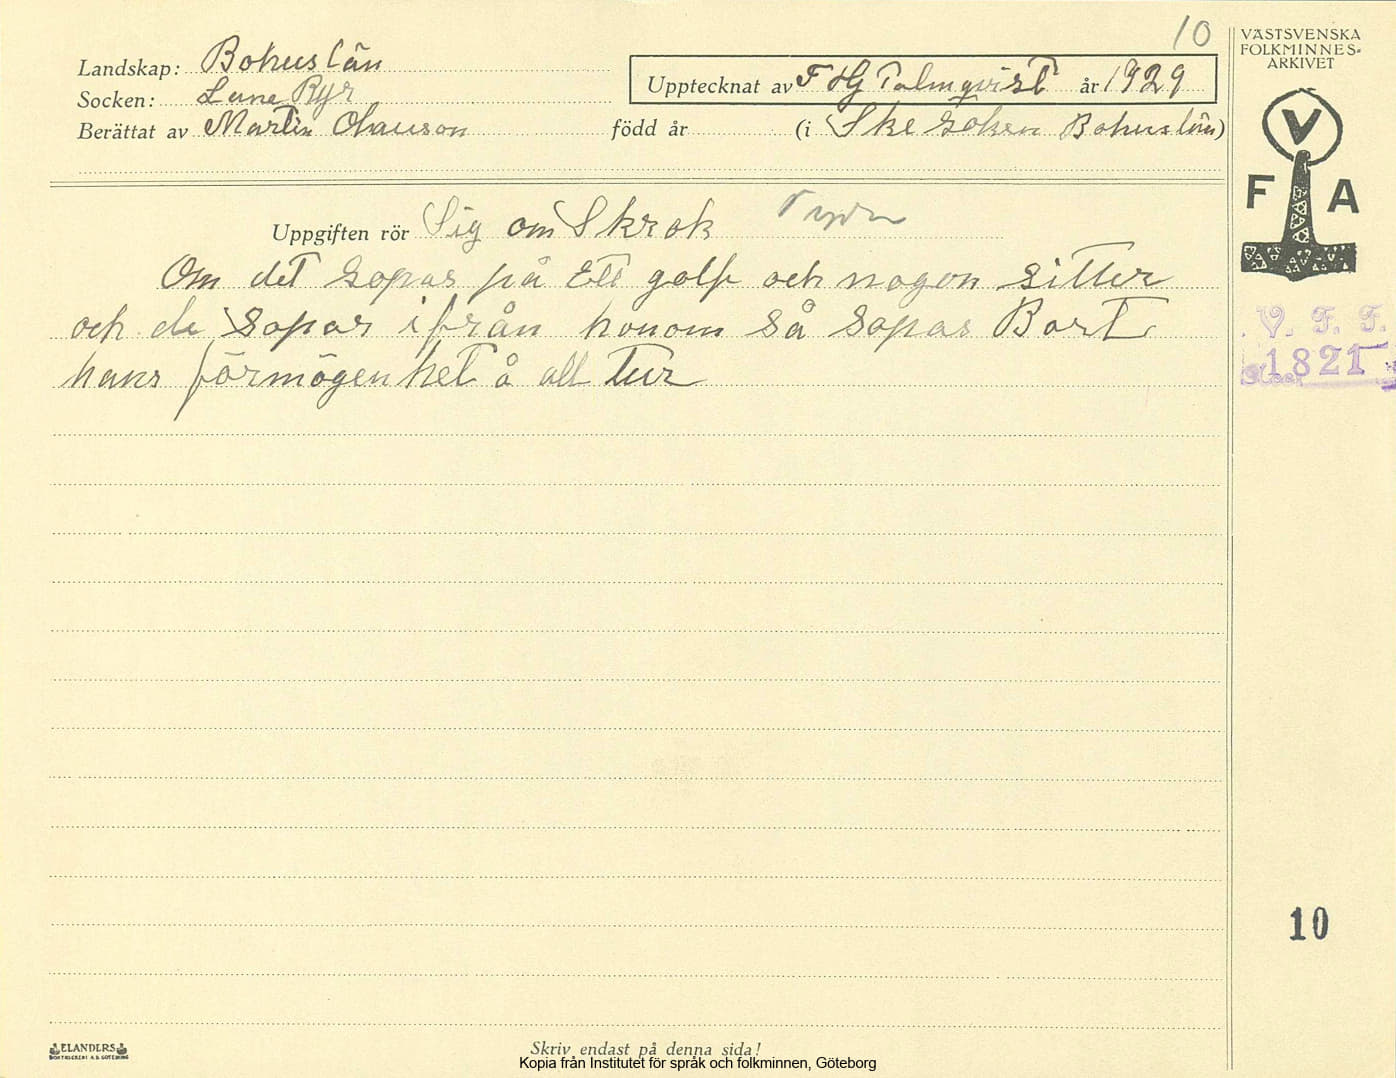 10
VÄSTSVENSKA
FOLKMINNES-
ARKIVET
Landskap: Bohuslän
Socken: Lane Ryr
Upptecknat av F Hj Palmqvist år 1929
Berättat av Martin Ohauson född år (i Ske Soken Bohuslän)
V
F A
Uppgiften rör Sig om Skrok
Om det sopas på Ett golf och nagon sitter
och de sopar ifrån honom så sopas Bort
hans förmögenhet å all tur
V. F. F.
1821
10
ELANDERS
BOKTRYCKERI A.B. GÖTEBORG
Skriv endast på denna sida!
Kopia från Institutet för språk och folkminnen, Göteborg